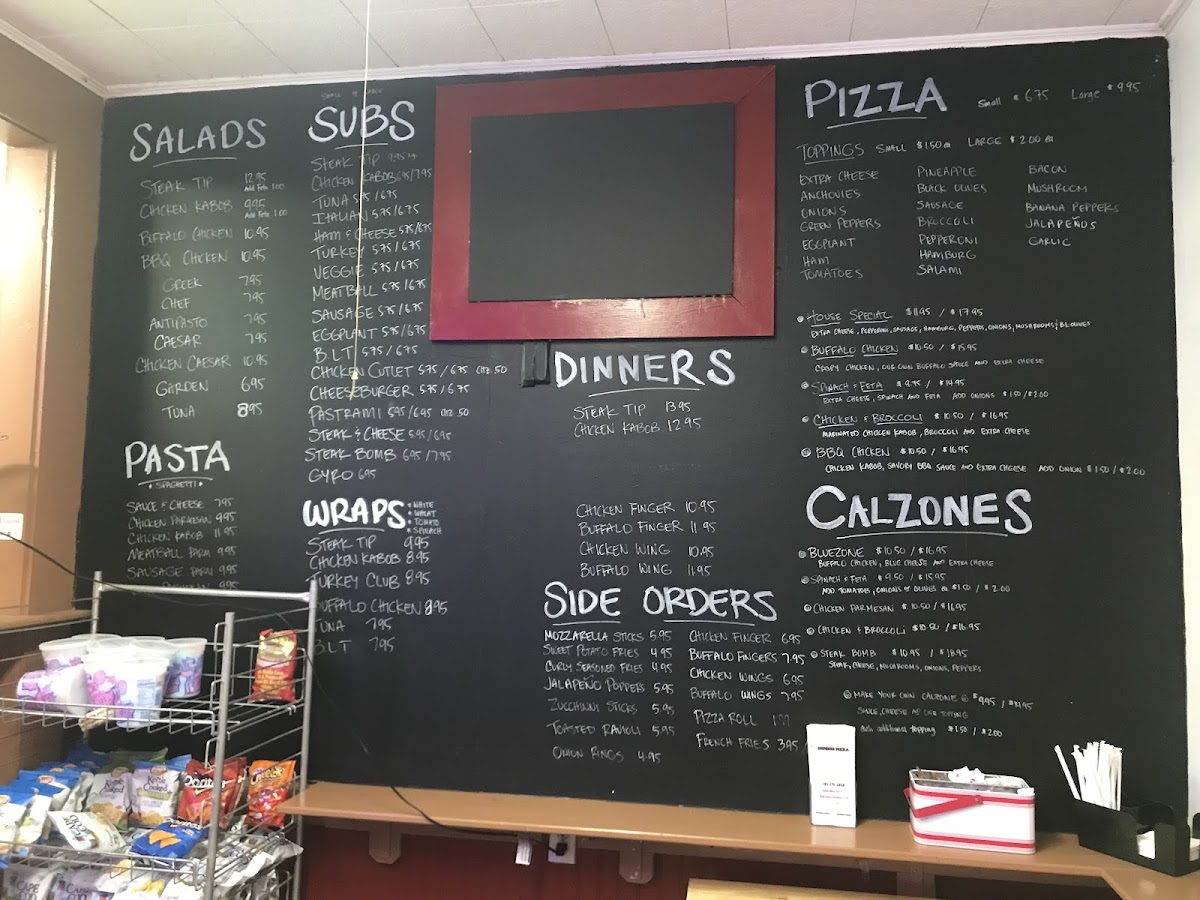 SALADS
STEAK TIP 12.95
Add Feta 1.00
CHICKEN KABOB 9.95
Add Feta 1.00
BUFFALO CHICKEN 10.95
BBQ CHICKEN 10.95
GREEK 7.95
CHEF 7.95
ANTIPASTO 7.95
CAESAR 7.95
CHICKEN CAESAR 10.95
GARDEN 6.95
TUNA 8.95
PASTA
• SPAGHETTI •
SAUCE & CHEESE 7.95
CHICKEN PARMESAN 9.95
CHICKEN KABOB 11.95
MEATBALL PARM 9.95
SAUSAGE PARM 9.95
SUBS
STEAK TIP
CHICKEN KABOB 6.95/7.95
TUNA 5.75/6.75
ITALIAN 5.75/6.75
HAM & CHEESE 5.75/6.75
TURKEY 5.75/6.75
VEGGIE 5.75/6.75
MEATBALL 5.75/6.75
SAUSAGE 5.75/6.75
EGGPLANT 5.75/6.75
BLT 5.75/6.75
CHICKEN CUTLET 5.75/6.75 CHZ .50
CHEESEBURGER 5.75/6.75
PASTRAMI 5.95/6.95 CHZ .50
STEAK & CHEESE 5.95/6.95
STEAK BOMB 6.95/7.95
GYRO 6.95
WRAPS
• WHITE
• WHEAT
• TOMATO
• SPINACH
STEAK TIP 9.95
CHICKEN KABOB 8.95
TURKEY CLUB 8.95
BUFFALO CHICKEN 8.95
TUNA 7.95
BLT 7.95
DINNERS
STEAK TIP 13.95
CHICKEN KABOB 12.95
CHICKEN FINGER 10.95
BUFFALO FINGER 11.95
CHICKEN WING 10.95
BUFFALO WING 11.95
SIDE ORDERS
MOZZARELLA STICKS 5.95
SWEET POTATO FRIES 4.95
CURLY SEASONED FRIES 4.95
JALAPEÑO POPPERS 5.95
ZUCCHINNI STICKS 5.95
TOASTED RAVIOLI 5.95
ONION RINGS 4.95
CHICKEN FINGER 6.95
BUFFALO FINGERS 7.95
CHICKEN WINGS 6.95
BUFFALO WINGS 7.95
PIZZA ROLL
FRENCH FRIES 3.95 /
PIZZA Small $6.75 Large $9.95
TOPPINGS SMALL $1.50 ea LARGE $2.00 ea
EXTRA CHEESE
ANCHOVIES
ONIONS
GREEN PEPPERS
EGGPLANT
HAM
TOMATOES
PINEAPPLE
BLACK OLIVES
SAUSAGE
BROCCOLI
PEPPERONI
HAMBURG
SALAMI
BACON
MUSHROOM
BANANA PEPPERS
JALAPEÑOS
GARLIC
HOUSE SPECIAL $11.95 / $17.95
EXTRA CHEESE, PEPPERONI, SAUSAGE, HAMBURG, PEPPERS, ONIONS, MUSHROOMS & B. OLIVES
BUFFALO CHICKEN $10.50 / $15.95
CRISPY CHICKEN, OUR OWN BUFFALO SAUCE AND EXTRA CHEESE
SPINACH & FETA $9.95 / $14.95
EXTRA CHEESE, SPINACH AND FETA ADD ONIONS $1.50/$2.00
CHICKEN & BROCCOLI $10.50 / $16.95
MARINATED CHICKEN KABOB, BROCCOLI AND EXTRA CHEESE
BBQ CHICKEN $10.50 / $16.95
CHICKEN KABOB, SAVORY BBQ SAUCE AND EXTRA CHEESE ADD ONION $1.50/$2.00
CALZONES
BLUEZONE $10.50 / $16.95
BUFFALO CHICKEN, BLUE CHEESE AND EXTRA CHEESE
SPINACH & FETA $9.50 / $15.95
ADD TOMATOES, ONIONS OR OLIVES @ $1.50 / $2.00
CHICKEN PARMESAN $10.50 / $16.95
CHICKEN & BROCCOLI $10.50 / $16.95
STEAK BOMB $10.95 / $18.95
STEAK, CHEESE, MUSHROOMS, ONIONS, PEPPERS
MAKE YOUR OWN CALZONE @ $9.95 / $14.95
SAUCE, CHEESE AND ONE TOPPING
Each additional topping $1.50 / $2.00
EXPRESS PIZZA